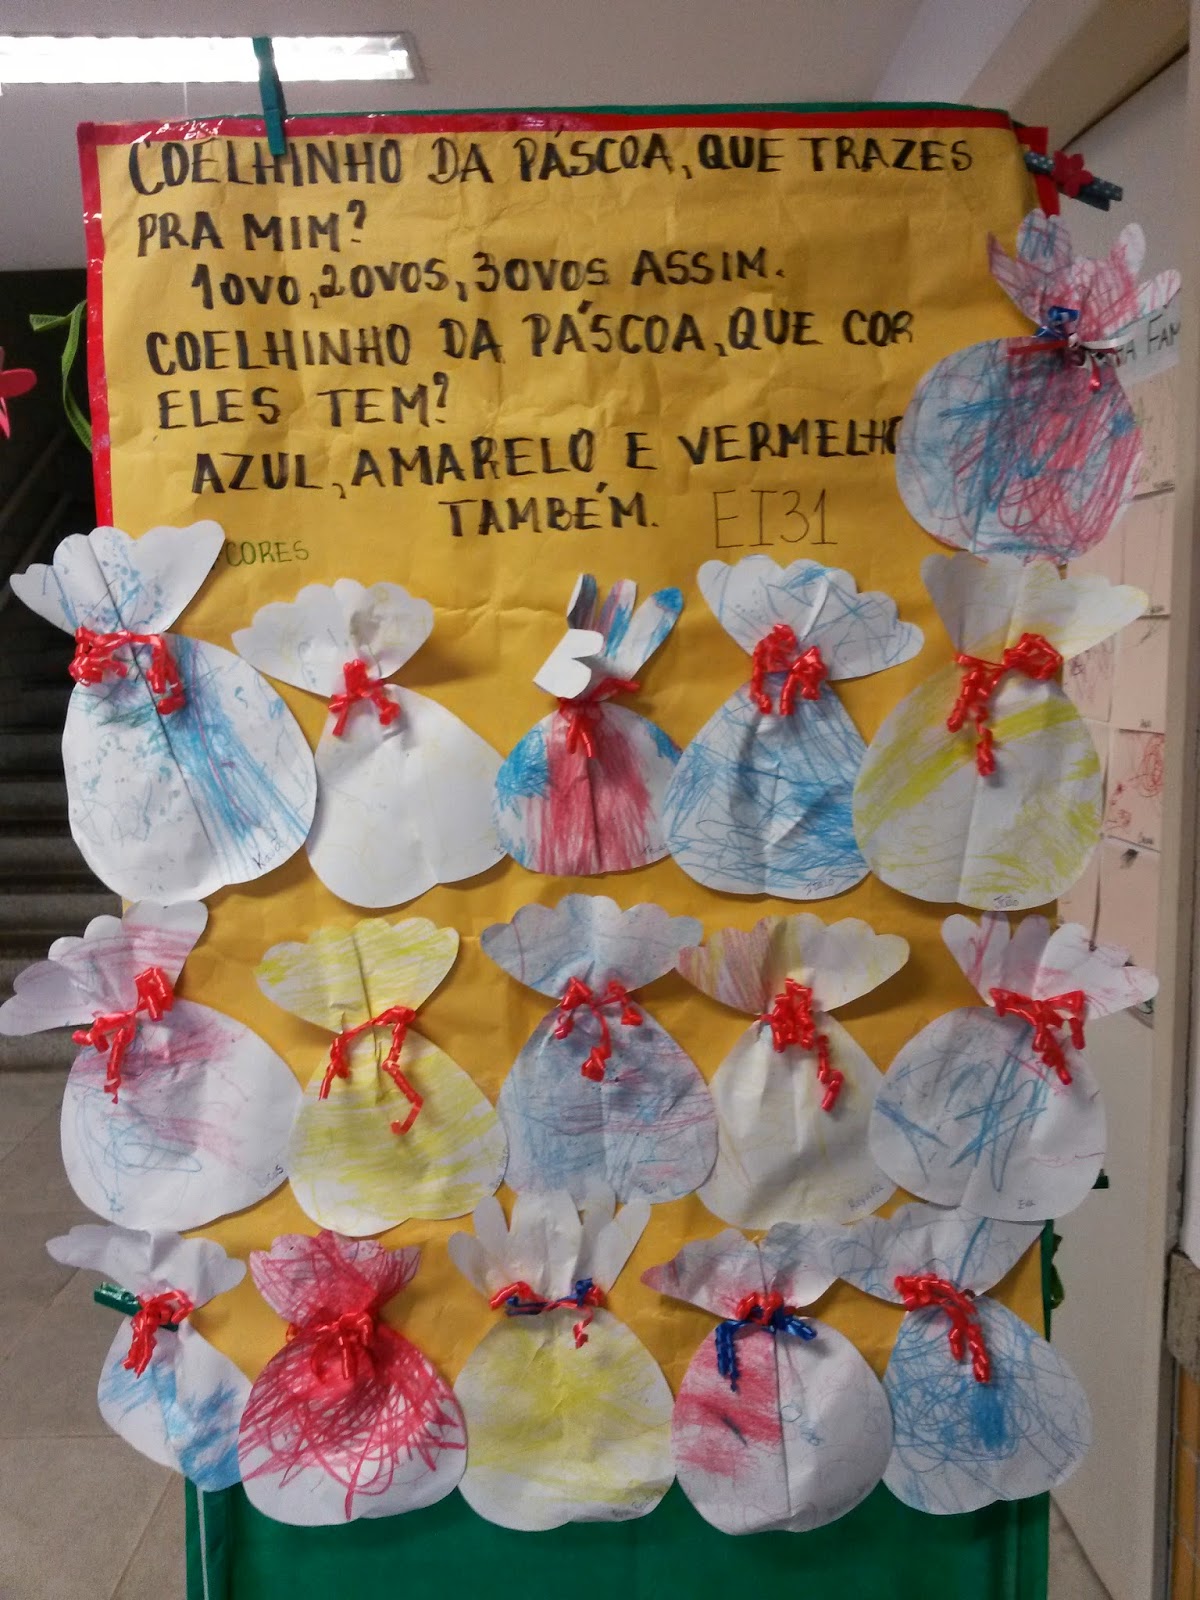 COELHINHO DA PÁSCOA, QUE TRAZES
PRA MIM?
1 OVO, 2 OVOS, 3 OVOS ASSIM.
COELHINHO DA PÁSCOA, QUE COR
ELES TEM?
AZUL, AMARELO E VERMELHO
TAMBÉM. EI31
CORES
FAM
João
Rayana